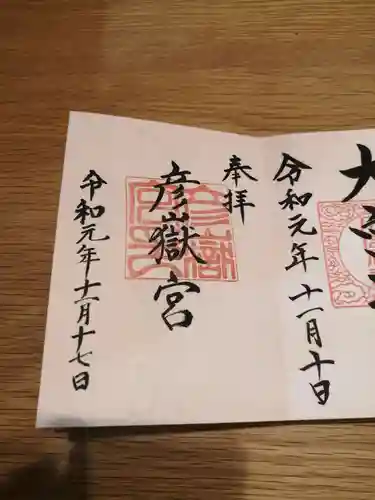 奉拝
彦嶽宮
令和元年十一月十七日
令和元年十一月十日